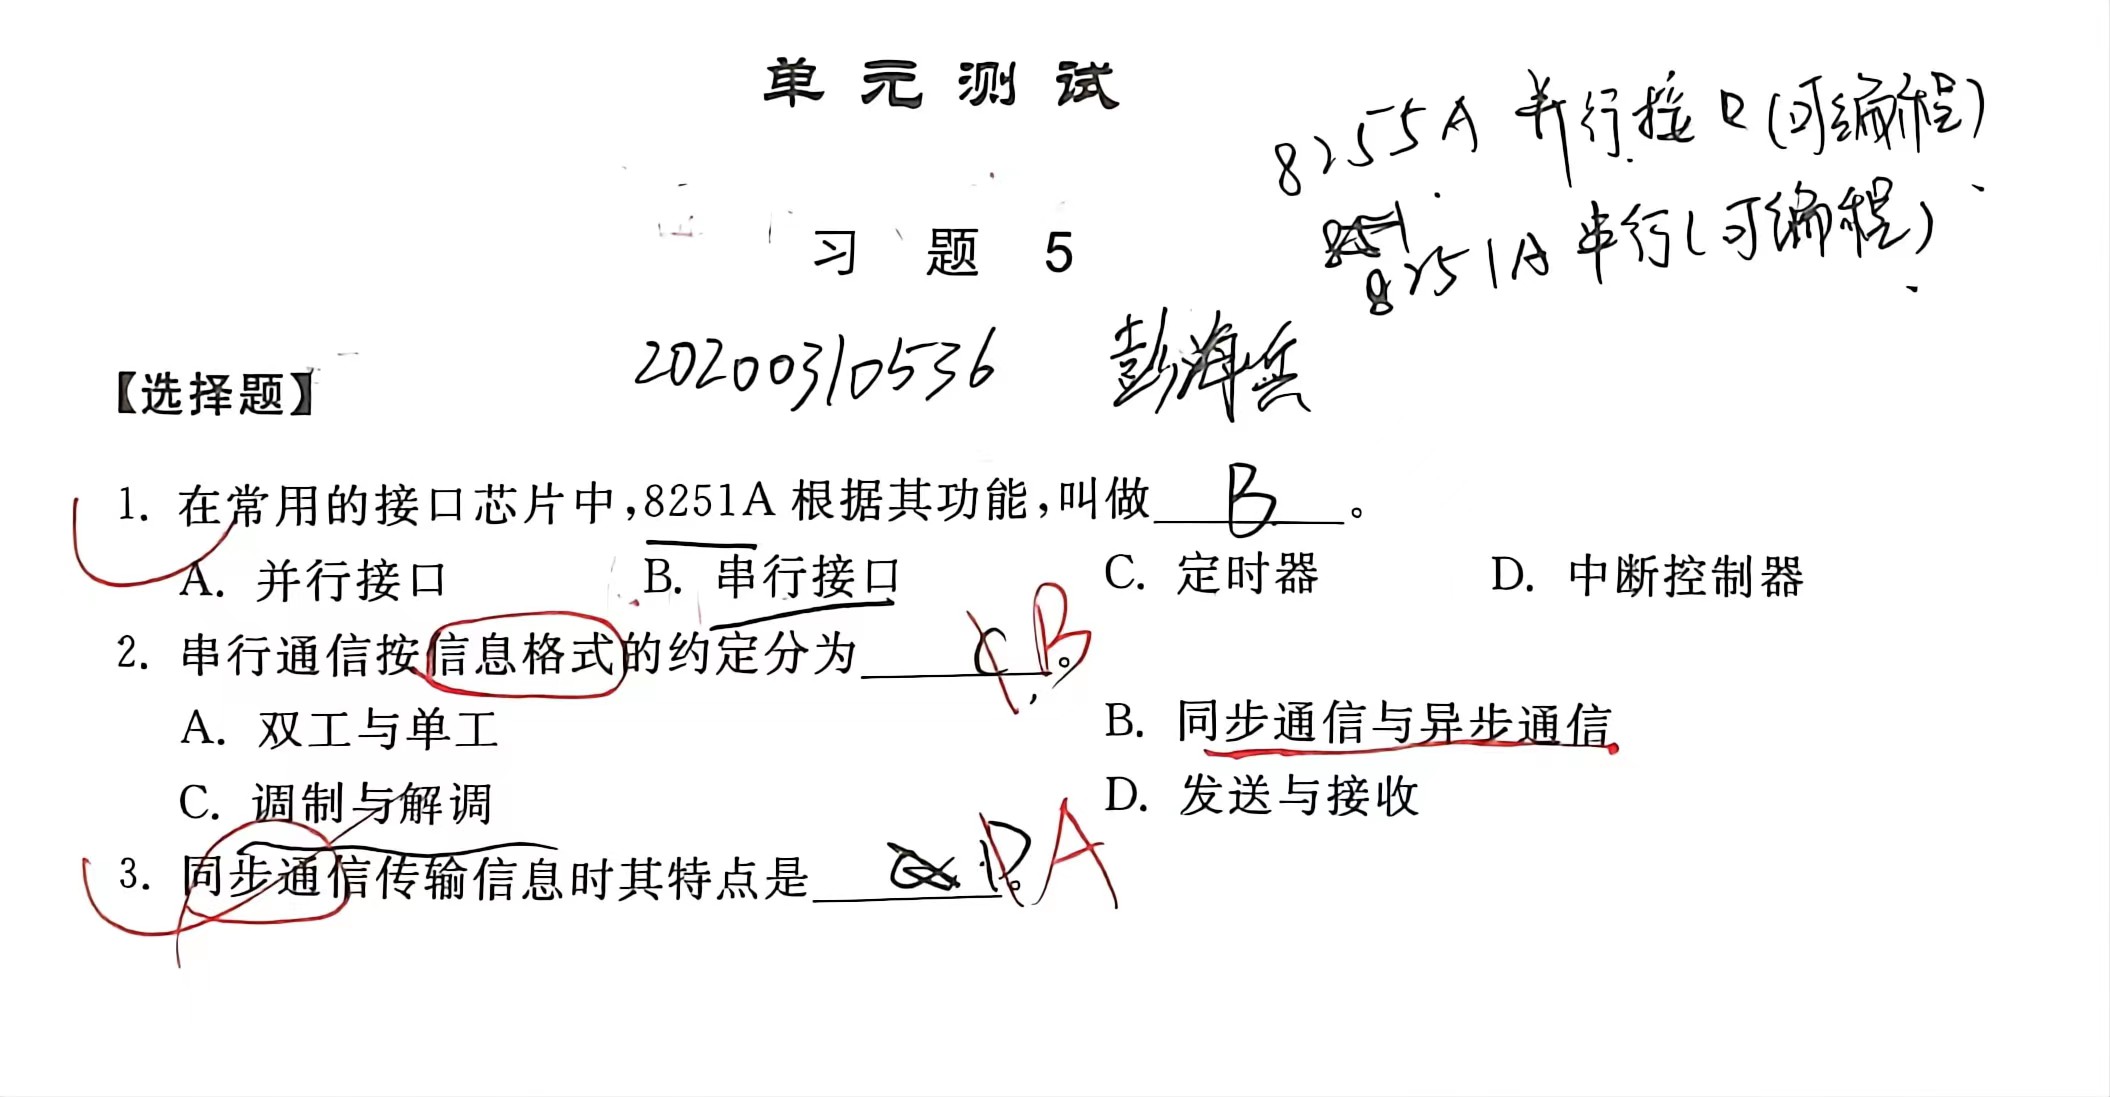 单元测试
8255A 并行接口(可编程)
习题 5
8251A 串行(可编程)
20200310536 彭海兵
【选择题】
1. 在常用的接口芯片中,8251A 根据其功能,叫做 B 。
A. 并行接口 B. 串行接口 C. 定时器 D. 中断控制器
2. 串行通信按信息格式的约定分为 C B 。
A. 双工与单工 B. 同步通信与异步通信
C. 调制与解调 D. 发送与接收
3. 同步通信传输信息时其特点是 D A 。